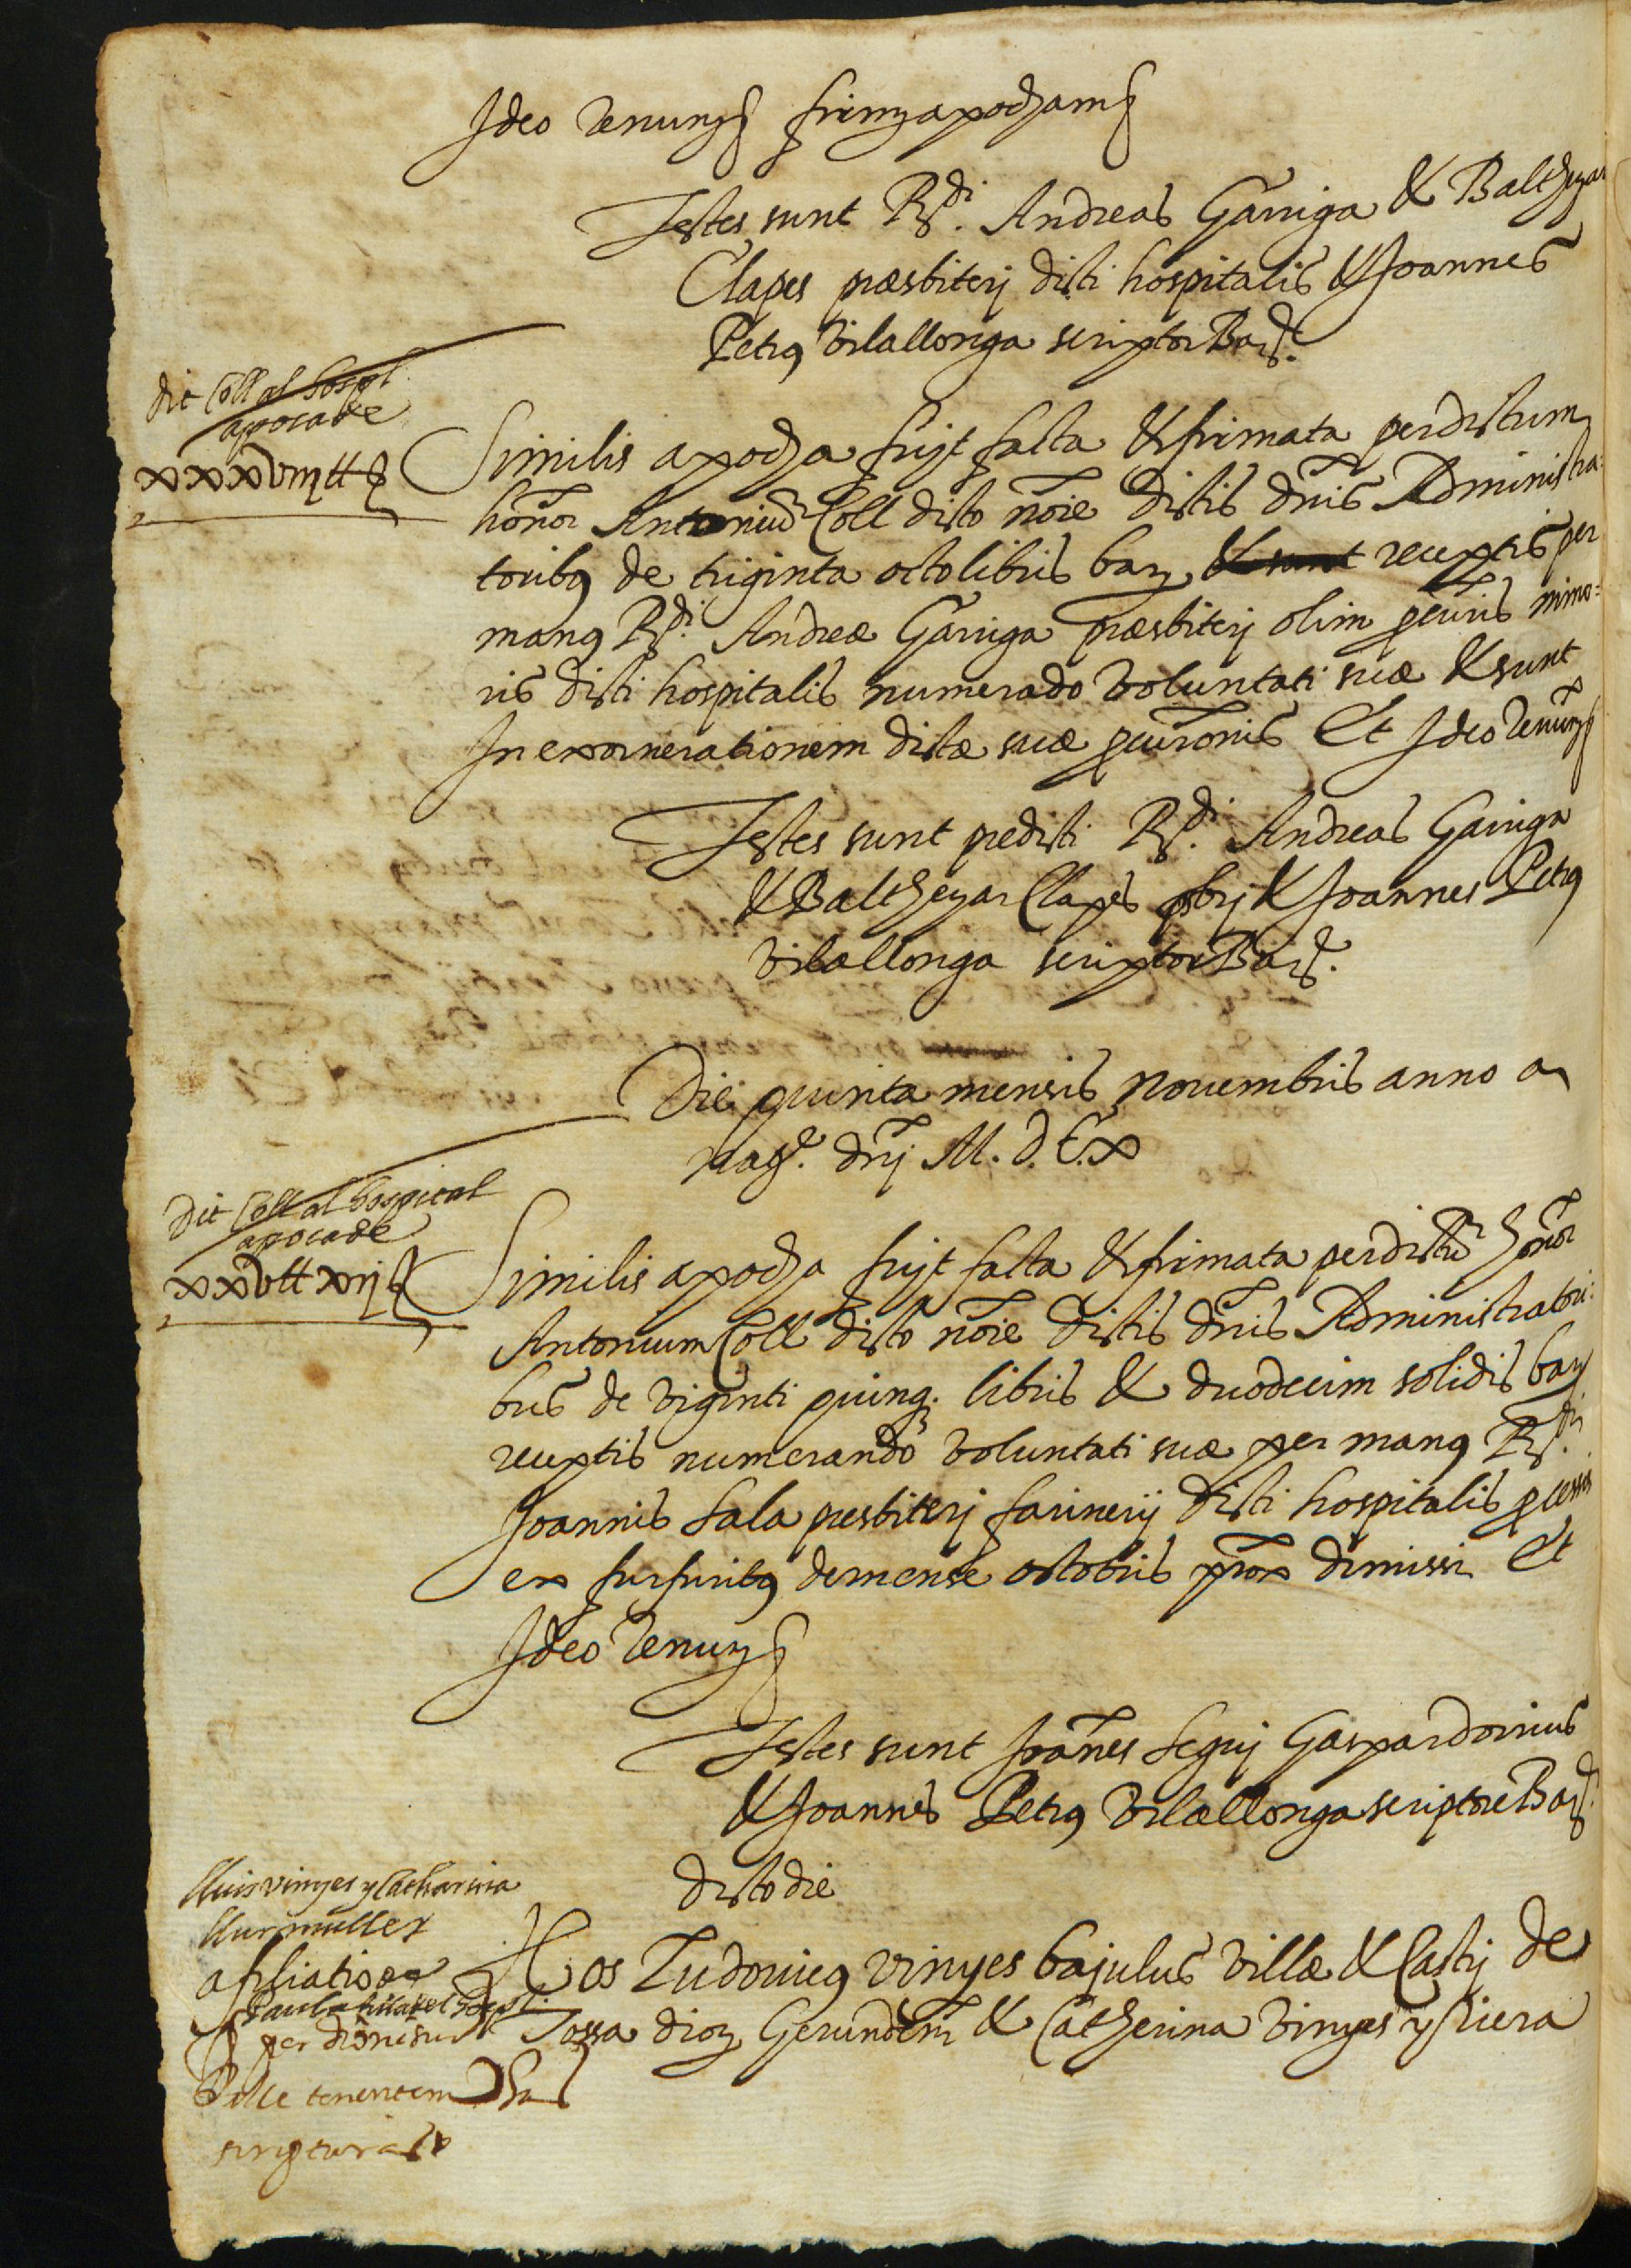 Ideo Renun͂ firm apocham
Testes sunt Rdi. Andreas Garriga & Balthezar
Clapes præsbiteri dicti hospitalis & Joannes
Petrus Vilallonga scriptor Bar.
dit Coll al hospl
apoca de
xxxviij ll s
Similis apocha fuit facta & firmata per dictum
honor Antonium Coll dicto noīe dictis dn̄is Administra-
toribus de triginta octo libris bar. receptis per
manus Rdi. Andreæ Garriga præsbiteri olim pcuris mino=
ris dicti hospitalis numerando voluntati suæ & sunt
In exornerationem dictæ suæ pcurōnis Et Ideo Renun͂
Testes sunt predicti Rdi. Andreas Garriga
& Balthezar Clapes pbri & Joannes Petrus
Vilallonga scriptor Bar.
Die quinta mensis Nouembris anno a
Natte. dn̄i M.D.C.x
Dit Coll al hospital
apoca de
xxv ll xij s
Similis apocha fuit facta & firmata per dictū honor
Antonium Coll dicto noīe dictis dn̄is Administratori-
bus de viginti quinq. libris & duodecim solidis bar
receptis numerando voluntati suæ per manus Rdi.
Joannis Sala presbiteri farinerij dicti hospitalis pcessis
ex furfuribus de mense octobris prox dimissi Et
Ideo Renun͂
Testes sunt Joānes Seguj Gaspar Dorius
& Joannes Petrus Vilallonga scriptore Bar.
dicto die
Lluis vinyes y Catharina
sur muller
afiliatio de
Paula hilaria del hospl.
per dionisium
Rille tenentem
scriptura
Nos Ludouicus Vinyes bajulus Villæ & Castri de
Tossa dioc Gerunden͂ & Catherina Vinyes y Riera